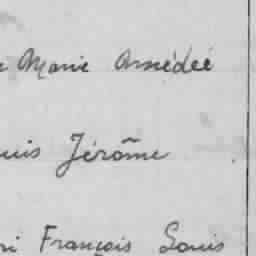 Marie Amédée
Jérôme
François Louis